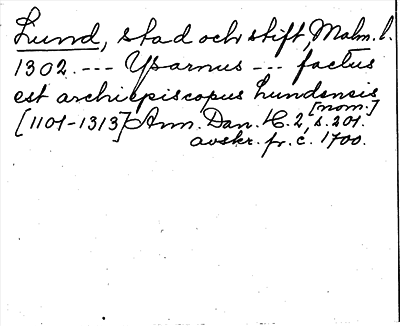 Lund, stad och stift, Malm. l.
1302. --- Ysarnus --- factus
est archiepiscopus Lundensis
[nom.]
[1101-1313] Ann. Dan. 16.2, s. 201.
avskr. fr. c. 1700.